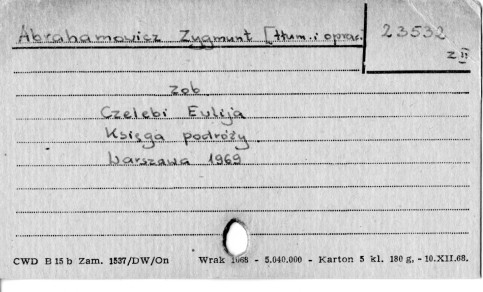 Abrahamowicz Zygmunt [tłum. i oprac.
23532
z II
zob
Czelebi Ewlija
Księga podróży
Warszawa 1969
CWD B 15 b Zam. 1537/DW/On Wrak 1968 - 5.040.000 - Karton 5 kl. 180 g. - 10.XII.68.